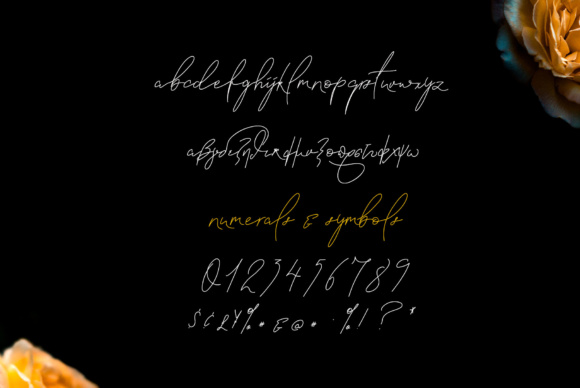 abcdefghijklmnopqrstuvwxyz
αβγδεζηθικλμνξοπρςστυφχψω
numerals & symbols
0123456789
$ ¢ £ ¥ % & @ % ! ? *